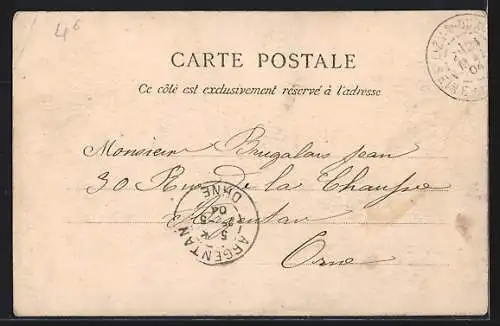 46
CARTE POSTALE
Ce côté est exclusivement réservé à l'adresse
Monsieur Brugalais Jean
30 Rue de la Chaussée
Argentan
Orne
ARGENTAN
ORNE
5 K
04
04